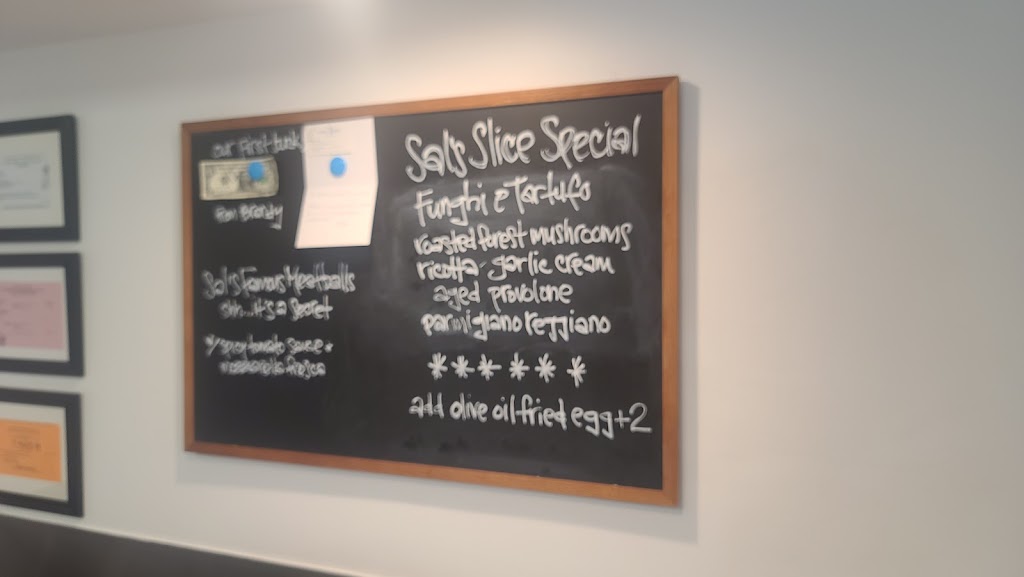 our First buck
Sal's Famous Meatballs
shh...it's a secret
w/ spicy tomato sauce
mozzarella fresca
Sal's Slice Special
Funghi e Tartufo
roasted forest mushrooms
ricotta-garlic cream
aged provolone
parmigiano reggiano
******
add olive oil fried egg +2